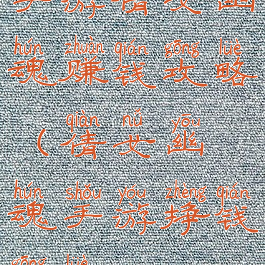 手游倩女幽
hún zhuàn qián gōng lüè
魂赚钱攻略
qiàn nǚ yōu
(倩女幽
hún shǒu yóu zhèng qián
魂手游挣钱
gōng lüè